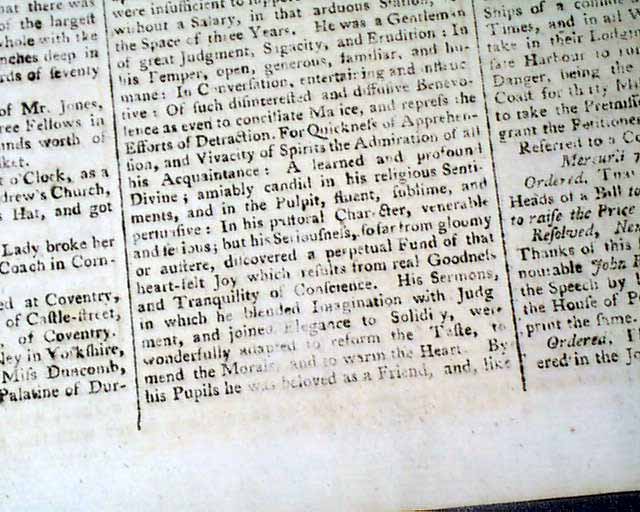 hat there was
of the largeſt
whole with the
nches deep in
rds of ſeventy
of Mr. Jones,
ree Fellows in
unds worth of
ket.
t o'Clock, as a
drew's Church,
s Hat, and got
Lady broke her
Coach in Corn-
ed at Coventry,
of Caſtle-ſtreet,
of Coventry.
ley in Yorkſhire,
Miſs Duncomb,
Palatine of Dur-
were inſufficient to
without a Salary, in that arduous Station,
the Space of three Years. He was a Gentleman
of great Judgment, Sagacity, and Erudition: In
his Temper, open, generous, familiar, and hu-
mane: In Converſation, entertaining and inſtruc
tive: Of ſuch diſintereſted and diffuſive Benevo-
lence as even to conciliate Ma ice, and repreſs the
Efforts of Detraction. For Quickneſs of Apprehen-
ſion, and Vivacity of Spirits the Admiration of all
his Acquaintance: A learned and profound
Divine; amiably candid in his religious Senti-
ments, and in the Pulpit, fluent, ſublime, and
perſuaſive: In his paſtoral Character, venerable
and ſerious; but his Seriouſneſs, ſo far from gloomy
or auſtere, diſcovered a perpetual Fund of that
heart-felt Joy which reſults from real Goodneſs
and Tranquility of Conſcience. His Sermons,
in which he blended Imagination with Judg
ment, and joined Elegance to Solidi y, were
wonderfully adapted to reform the Taſte, to
mend the Morals, and to warm the Heart. By
his Pupils he was beloved as a Friend, and, like
Ships of a
Times, and in all W
take in their Lodgin
ſafe Harbour to
Danger, being the
Coaſt for thirty Mi
to take the Premiſes
grant the Petitioner
Referred to a Co
Mercurii
Ordered, That
Heads of a Bill
to raiſe the Price
Reſolved, Nem
Thanks of this
nourable John P
the Speech by
the Houſe of P
print the ſame.
Ordered,
ered in the Jo